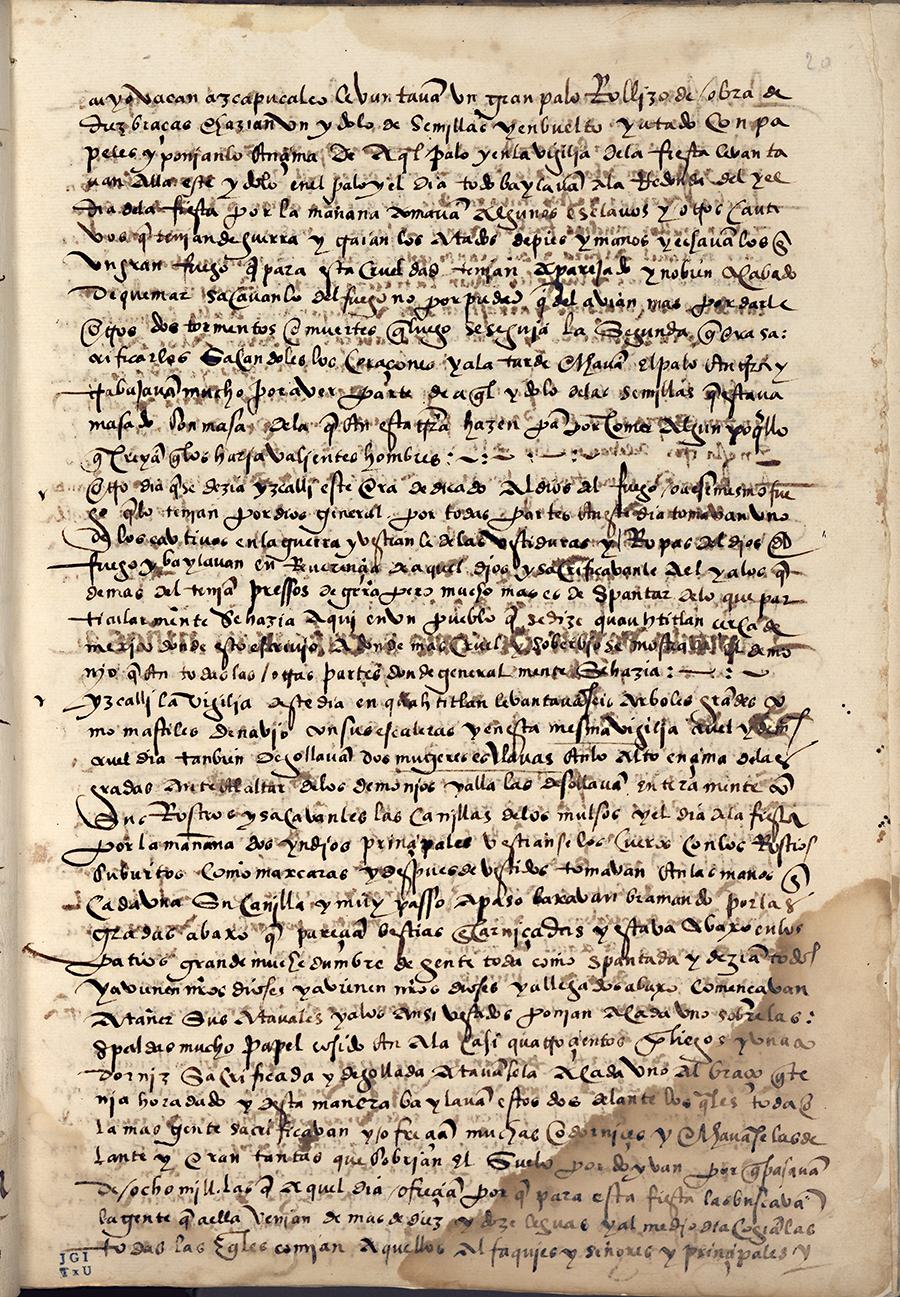 20
cuyovacan azcapucalco levantavā un gran palo Rollizo de sobra de
diez braças hazian un ydolo de semillas y enbuelto y atado con pa
peles y ponianlo en çima de aql palo y en la vigilia dela fiesta levanta
van alla este ydolo en el palo y el dia todo baylavā ala Redonda del y el
dia dela fiesta por la mañana tomavā algunos esclavos y otros cauti
vos q̄ tenian de guerra y traian los atados de pies y manos y echavā los en
un gran fuego q̄ para esta crueldad tenian aparejado y no bien acabado
de quemar sacavanlo del fuego no por piedad q̄ del avian mas por darle
otros dos tormentos o muertes q̄ luego se seguia la segunda q̄ era sa:
crificarlos sacandoles los coraçones y ala tarde echavā el palo en trra y
trabajavā mucho por aver parte de aql ydolo delas semillas q̄ estava
masado con masa dela q̄ en esta trra hazen pā por comer algun poqllo
q̄ creyā q̄ los haria valientes hombres :~:~
otro dia q̄ se dezia yzcalli este era dedicado al dios del fuego o asi mismo fue
go q̄ lo tenian por dios general por todas partes en este dia tomavan uno
de los cautivos en la guerra y vestian le delas vestiduras y Ropas del dios del
fuego y baylavan en Reverençia de aquel dios y sacrificavanle a el y a los q̄
demas del teniā pressos de gerra pero mucho mas es de spantar delo que par
ticularmēte se hazia aqui en un pueblo q̄ se dize quauhtitlan cerca de
mexico donde esto escrivo a donde mas cruel y sobervio se mostrava el demo
nio q̄ en todas las otras partes donde generalmente se hazia :~:~
yzcalli la vigilia deste dia en quahtitlan levantavā seis arboles grādes co
mo mastiles de navio con sus escaleras y en esta mesma vigilia
tanbien degollavā dos mugeres esclavas en lo alto en çima delas
gradas ante el altar delos demonios y alla las desollavā enteramente con
sus Rostros y sacavanles las canillas delos muslos y el dia dela fiesta
por la mañana dos yndios prinçipales vestianse los cueros con los Rostros
como mascaras y despues de vestidos tomavan en las manos en
cada una su canilla y muy passo a paso baxavan bramando por las
gradas abaxo q̄ pareçiā bestias encarniçadas y estava abaxo en los
patios grande muchedumbre de gente toda como spantada y deziā todos
ya vienen nr̄os dioses ya vienen nr̄os dioses y allegados abaxo començavan
a tañer sus atavales y alos ansi vestidos ponian a cada uno sobre las:
spaldas mucho papel cosido en ala casi quatroçientos pliegos y una co
dorniz sacrificada y degollada atavāsela a cada uno al braço q̄ te
nia horadado y desta manera baylavā estos dos delante los qles toda
la mas gente sacrificavan y ofreçiā muchas codornices y echavāselas de
lante y eran tantas que cobrian el suelo por do yvan por q̄ pasavā
de ocho mill las q̄ aquel dia ofreçiā por q̄ para esta fiesta las buscava
la gente q̄ aella venian de mas de diez y doze leguas y al mediodia cogiālas
todas las qles comian aquellos alfaquies y señores y prinçipales y
JGI
TxU